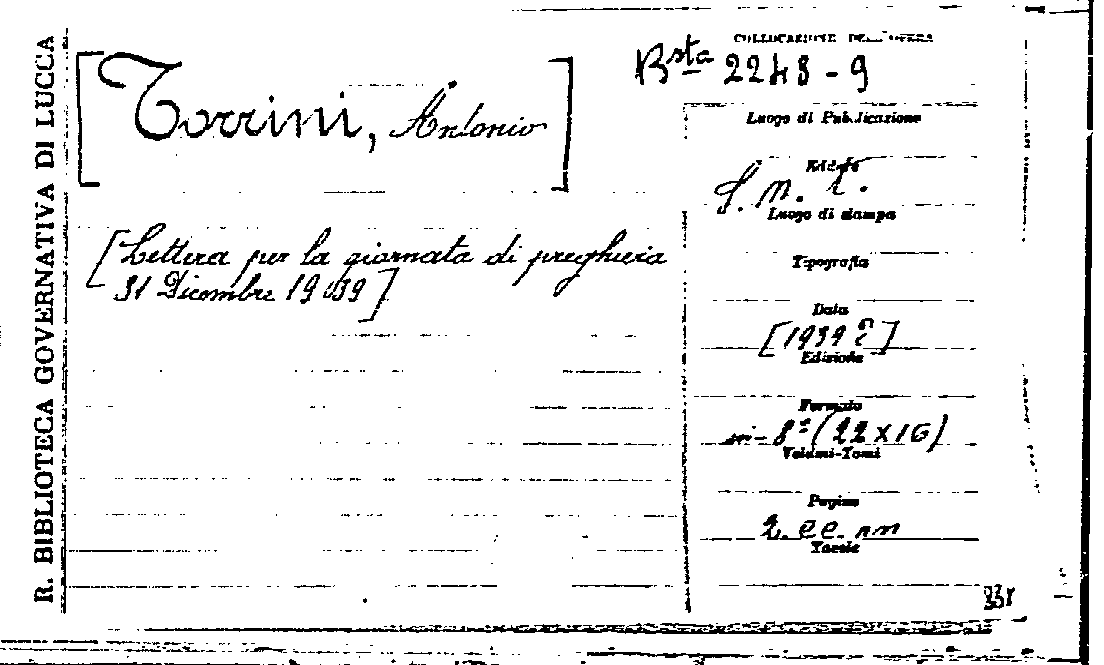 R. BIBLIOTECA GOVERNATIVA DI LUCCA
[Torrini, Antonio]
[Lettera per la giornata di preghiera
31 Dicembre 1939]
COLLOCAZIONE DELL'OPERA
Bsta 2248-9
Luogo di Pubblicazione
Editore
S. n. t.
Luogo di stampa
Tipografia
Data
[1939?]
Edizione
Formato
in-8° (22x16)
Volumi-Tomi
Pagine
2. cc. nn
Tavole